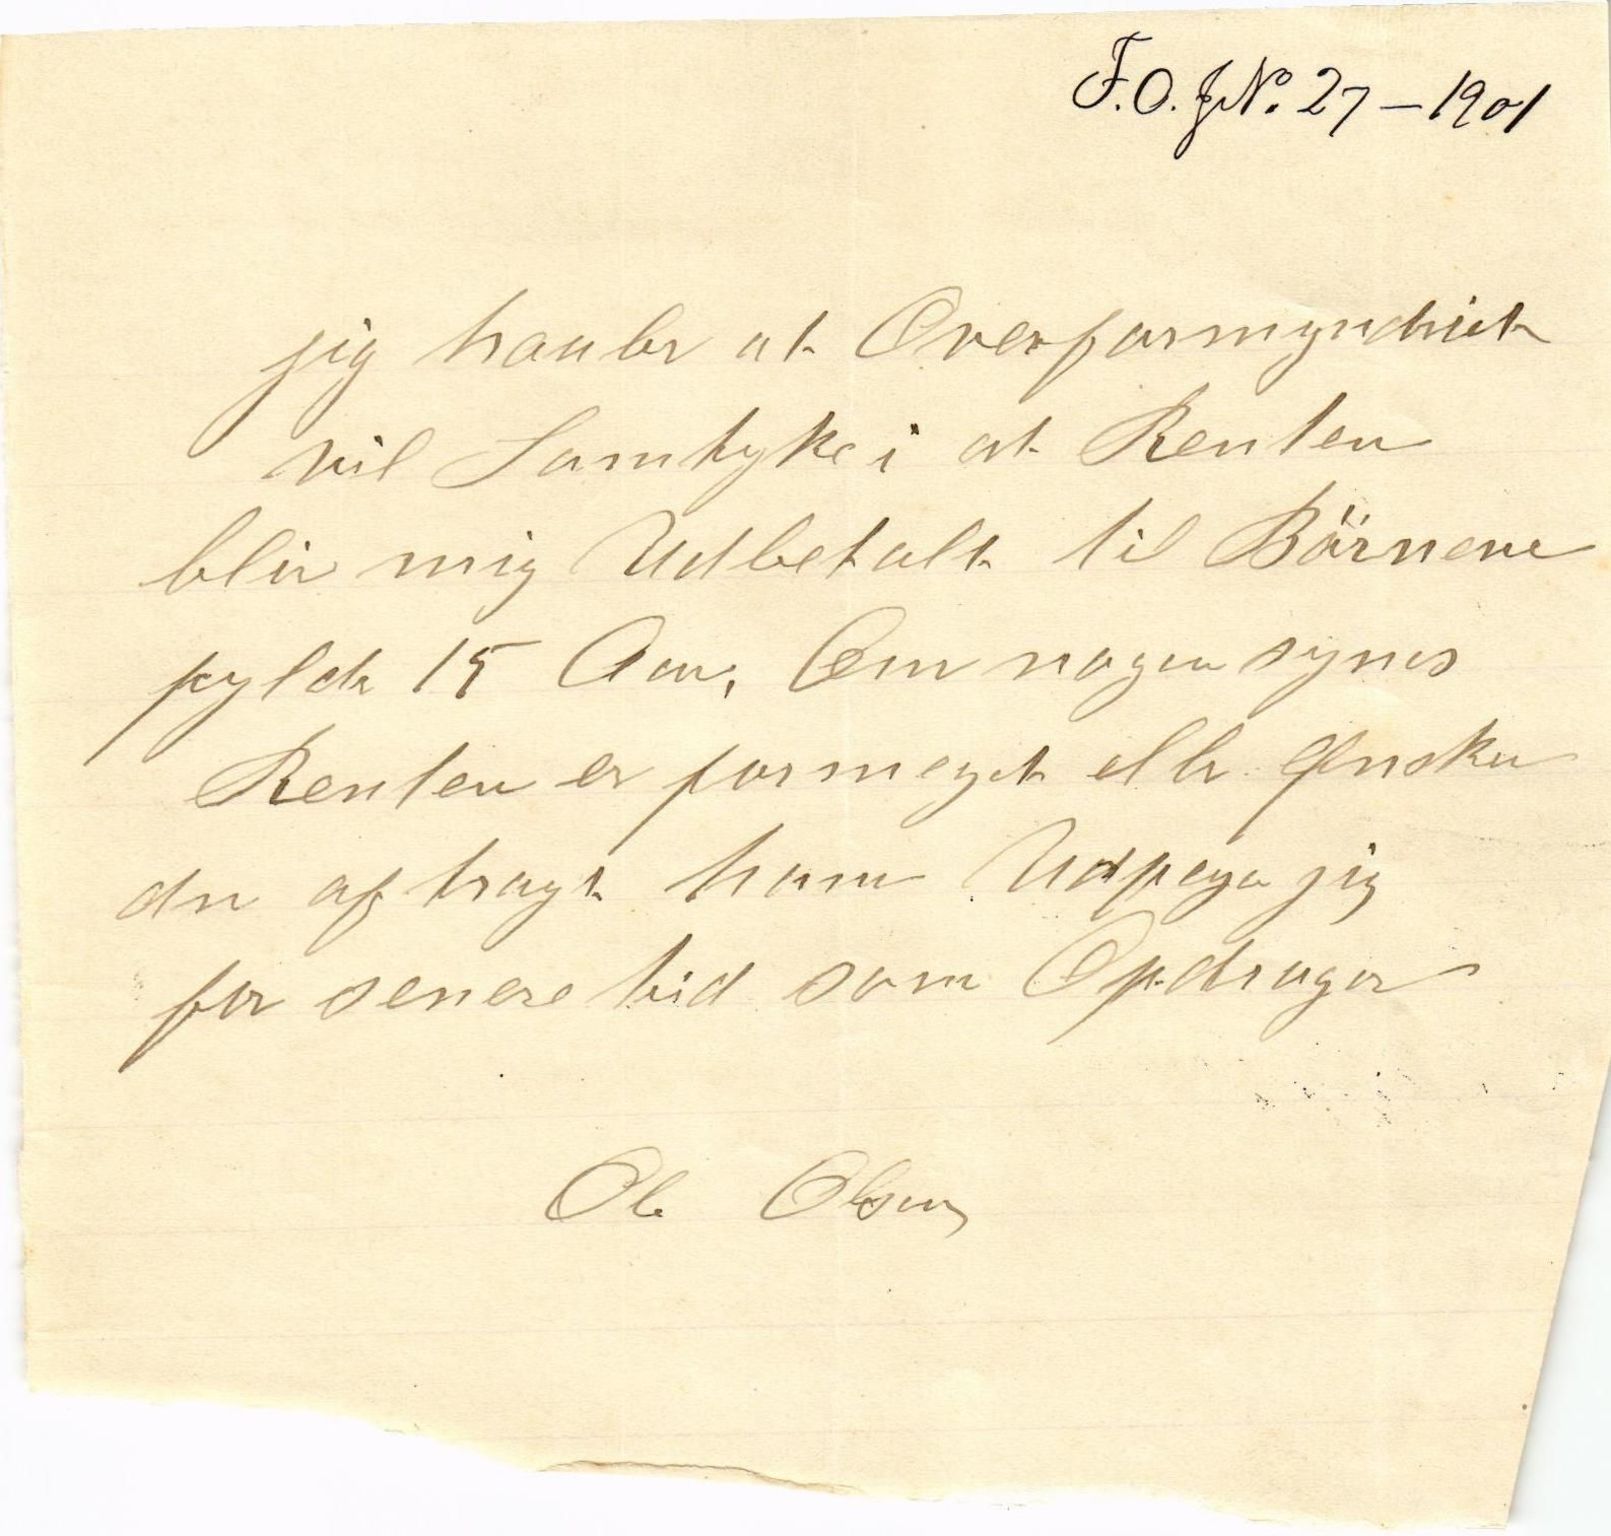 F.O. J№. 27 – 1901
jig haaber at Overformynderiet
vil Samtyke i at Renten
blir mig Udbetalt til Börnene
fyldt 15 Aar, Om nogen synes
Renten er formeget eller Ønsker
den aftragt ham Udpeger jig
for senere tid som Opdrager
Ole Olsen